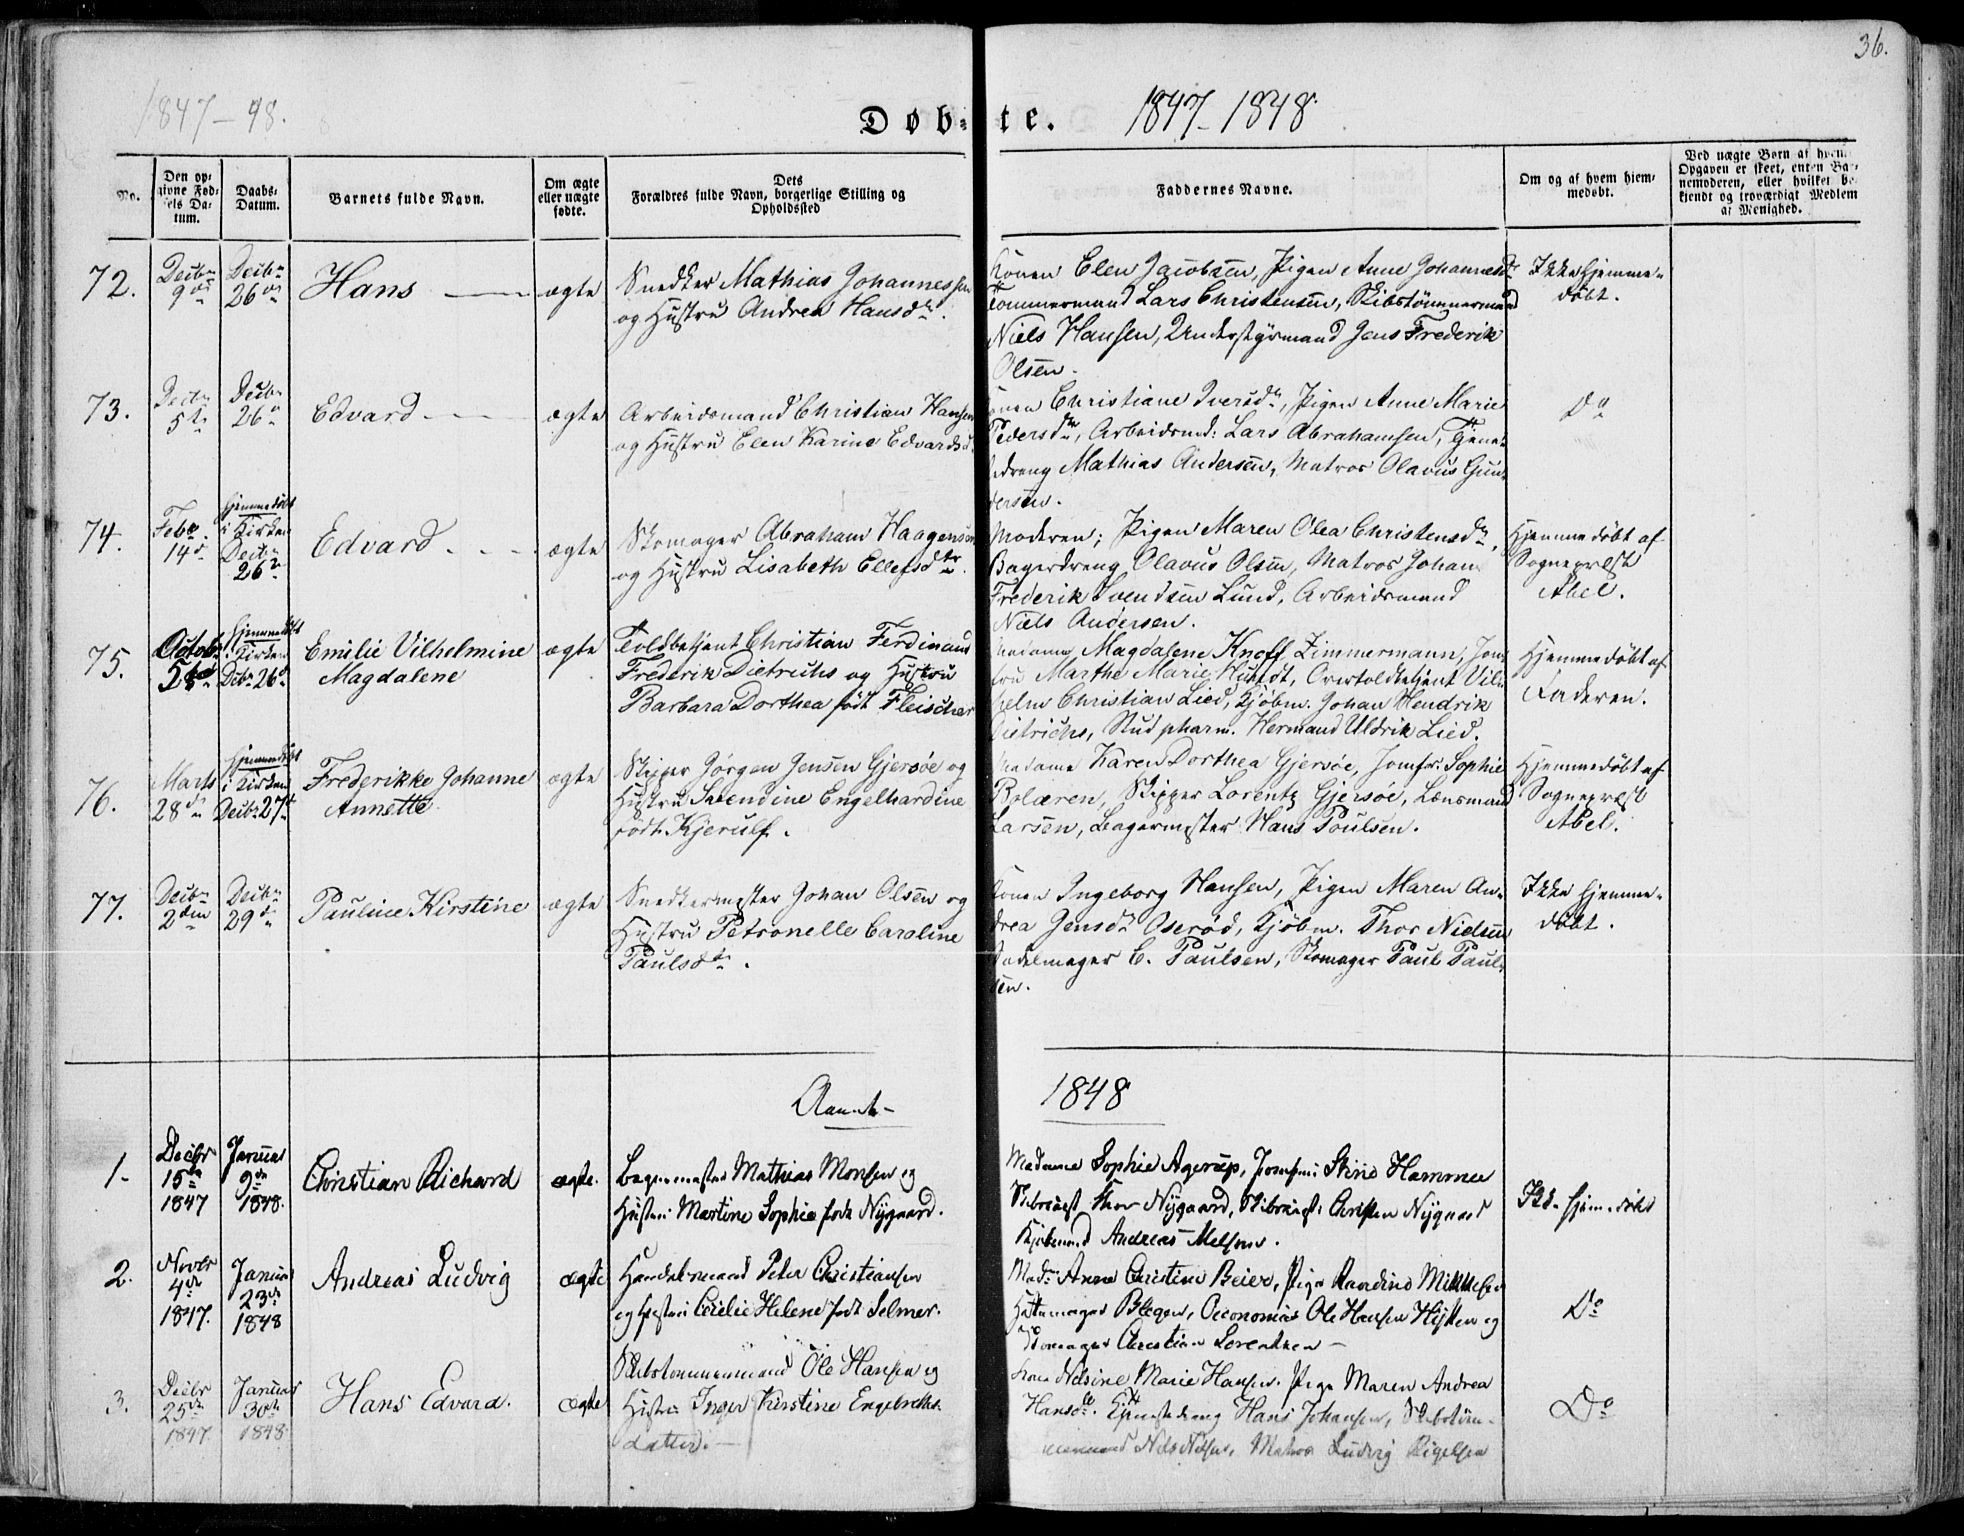 36.
1847-48.
Døb-te.
1847-1848
No.
Den op-
givne Fød-
sels Da-
tum.
Daabs-
Datum.
Barnets fulde Navn.
Om ægte
eller uægte
fødte.
Dets
Forældres fulde Navn, borgerlige Stilling og
Opholdssted
Faddernes Navne.
Om og af hvem hjem-
medøbt.
Ved uægte Børn af hvem
Opgaven er skeet, enten Bar-
nemoderen, eller hvilket be-
kjendt og troværdigt Medlem
af Menighed.
72.
Decbr
9de
Decbr
26de
Hans
ægte
Snedker Mathias Johannessen
og Hustru Andrea Hansdr.
Konen Elen Jacobsen, Pigen Anne Johannesdr
Tømmermand Lars Christensen, Skibstømmermand
Niels Hansen, Understyrmand Jens Frederik
Olsen.
Ikke hjemme-
døbt.
73.
Decbr
5te
Decbr
26de
Edvard
ægte
Arbeidsmand Christian Hansen
og Hustru Elen Karine Edvardsd.
Konen Christiane Iversdr, Pigen Anne Marie
Pedersdtr, Arbeidsmd: Lars Abrahamsen, Tjene-
stedreng Mathias Andersen, Matros Olavus Gun-
dersen.
Do
74.
Febr.
14de
hjemmedøbt
i Kirken
Decbr
26de
Edvard
ægte
Skomager Abraham Haagensen
og Hustru Lisabeth Ellefsdtr.
Moderen; Pigen Maren Olea Christensdr,
Bagerdreng Olavus Olsen, Matros Johan
Frederik Svendsen Lund, Arbeidsmand
Niels Andersen.
Hjemmedøbt af
Sognepræst
Abel.
75.
Octobr
5te
hjemmedøbt
i Kirken
Decbr 26de
Emilie Vilhelmine
Magdalene
ægte
Toldbetjent Christian Ferdinand
Frederik Dietrichs og Hustru
Barbara Dorthea født Fleischer
Madame Magdalene Knoff Zimmermann, Jom-
fru Marthe Marie, Overtoldbetjent Vil-
helm Christian Lied, Kjøbm. Johan Hendrik
Dietrichs, Stud pharm. Hermand Uldrik Lied.
Hjemmedøbt af
Faderen.
76.
Marts
28de
hjemmedøbt
i Kirken
Decbr 27de
Frederikke Johanne
Annette
ægte
Skipper Jørgen Jensen Gjersøe og
Hustru Engelhardine
født Kjerulf.
Madame Karen Dorthea Gjersøe, Jomfr: Sophie
Bolæren, Skipper Lorentz Gjersøe, Lænsmand
Larsen, Bagermester Hans Poulsen.
Hjemmedøbt af
Sognepræst
Abel.
77.
Decbr
2den
Decbr
29de
Pauline Kirstine
ægte
Snedkermester Johan Olsen og
Hustru Petronelle Caroline
Paulsdtr.
Konen Ingeborg Hansen, Pigen Maren An-
drea Jensdr Oserød, Kjøbm. Thor Nielsen
Sadelmager C. Paulsen, Skomager Paul Paul-
sen.
Ikke hjemme-
døbt.
Aaret
1848
1.
Decbr
15de
1847
Januar
9de
1848.
Christian Richard
ægte.
Bagermester Mathias Monsen og
Hustru Martine Sophie født Nygaard.
Madame Sophie Agerup, Jomfru: Stine Hammer
Thor Nygaard, Christen Nygaard
Kjøbmand Andreas Melsom.
Ikke hjemmedøbt
2.
Novbr
4de
1847.
Januar
23de
1848
Andreas Ludvig
ægte
Handelsmand Peter Christiansen
og Hustru Cecilie Helene født Selmer.
Mad: Anne Christine Beier, Pige Randine Mikkelsen
Hattemager Blegen, Oeconomus Ole Hansen og
Skomager Christian Lorentzen
Do
3.
Decbr
25de
1847.
Januar
30te
1848
Hans Edvard.
ægte
Skibstømmermand Ole Hansen og
Hustru Inger Kirstine Engebreths-
datter.
Kone Nilsine Marie Hansen. Pige Maren Andrea
Hansdtr. Tjenestedreng Hans Johansen, Skibstøm-
mermand Nils Nilsen, Matros Ludvig
Do